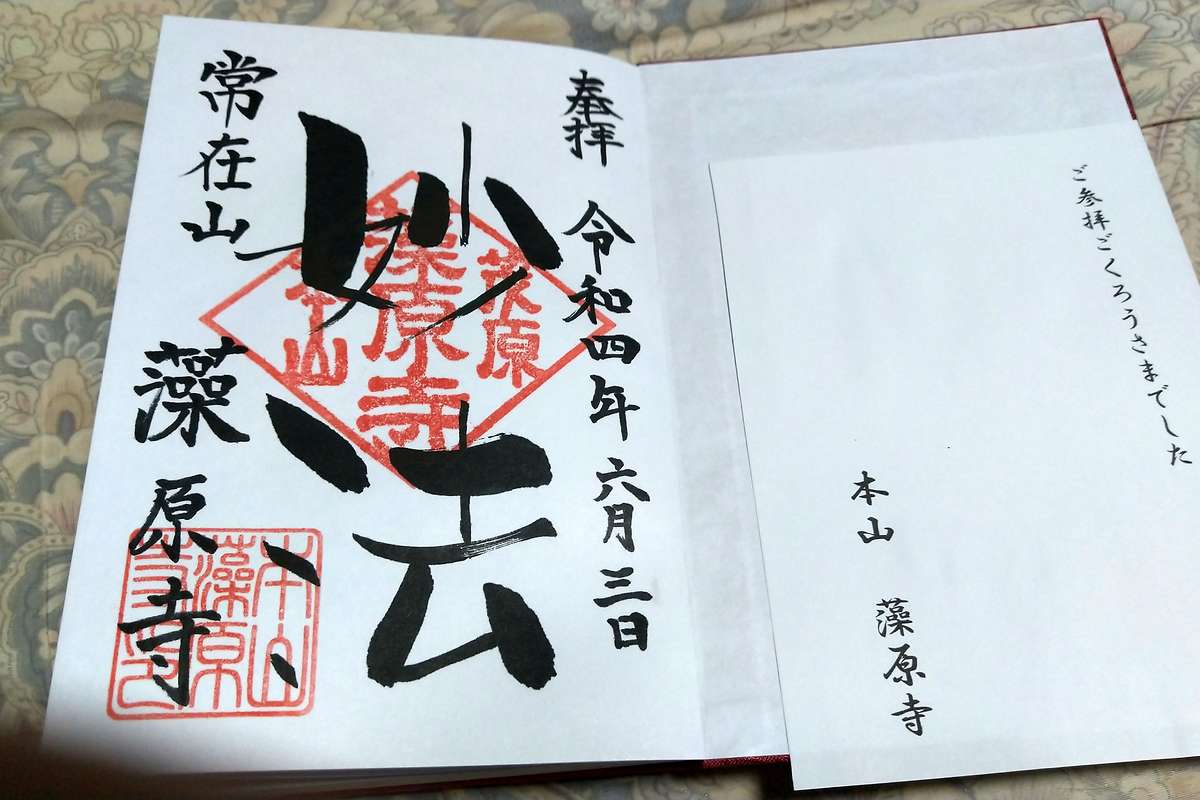 ご参拝ごくろうさまでした
本山 藻原寺
奉拝 令和四年六月三日
妙法
茂原
藻原寺
本山
常在山 藻原寺
本山
藻原
寺印